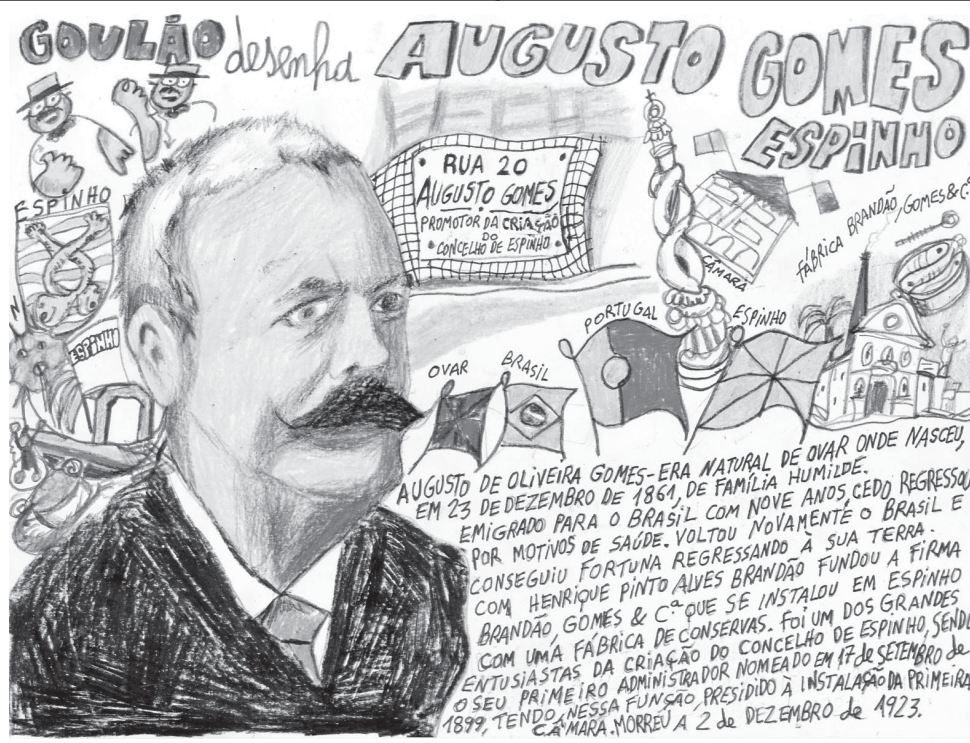 GOULÃO desenha AUGUSTO GOMES
ESPINHO
ESPINHO
RUA 20
AUGUSTO GOMES
PROMOTOR DA CRIAÇÃO
DO
CONCELHO DE ESPINHO
CÂMARA
FÁBRICA BRANDÃO, GOMES & Cª
ESPINHO
OVAR
BRASIL
PORTUGAL
ESPINHO
AUGUSTO DE OLIVEIRA GOMES-ERA NATURAL DE OVAR ONDE NASCEU,
EM 23 DE DEZEMBRO DE 1861, DE FAMÍLIA HUMILDE.
EMIGRADO PARA O BRASIL COM NOVE ANOS, CEDO REGRESSOU
POR MOTIVOS DE SAÚDE. VOLTOU NOVAMENTE O BRASIL E
CONSEGUIU FORTUNA REGRESSANDO À SUA TERRA.
COM HENRIQUE PINTO ALVES BRANDÃO FUNDOU A FIRMA
BRANDÃO, GOMES & Cª QUE SE INSTALOU EM ESPINHO
COM UMA FÁBRICA DE CONSERVAS. FOI UM DOS GRANDES
ENTUSIASTAS DA CRIAÇÃO DO CONCELHO DE ESPINHO, SENDO
O SEU PRIMEIRO ADMINISTRADOR NOMEADO EM 17 de SETEMBRO de
1899, TENDO, NESSA FUNSÃO, PRESIDIDO À INSTALAÇÃO DA PRIMEIRA
CÂMARA. MORREU A 2 de DEZEMBRO de 1923.